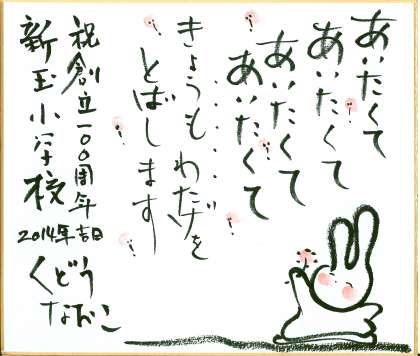 あいたくて
あいたくて
あいたくて
あいたくて
‥‥‥‥
きょうも わたげを
とばします
祝創立一〇〇周年
新玉小学校
2014年吉日
くどう
なおこ